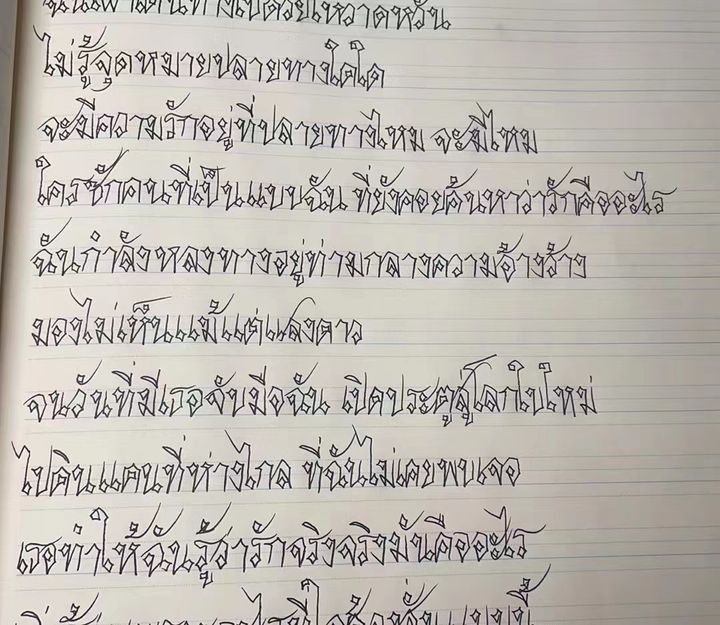 ฉันเฝ้าเดินทางไปด้วยใหวาดหวั่น
ไม่รู้จุดหมายปลายทางใดใด
จะมีความรักอยู่ที่ปลายทางไหม จะมีไหม
ใครซักคนที่เป็นแบบฉัน ที่ยังคอยค้นหาว่ารักคืออะไร
ฉันกำลังหลงทางอยู่ท่ามกลางความอ้างว้าง
มองไม่เห็นแม้แต่แสงดาว
จนวันที่มีเธอจับมือฉัน เปิดประตูสู่โลกใบใหม่
ไปดินแดนที่ห่างไกล ที่ฉันไม่เคยพบเจอ
เธอทำให้ฉันรู้ว่ารักจริงจริงมันคืออะไร